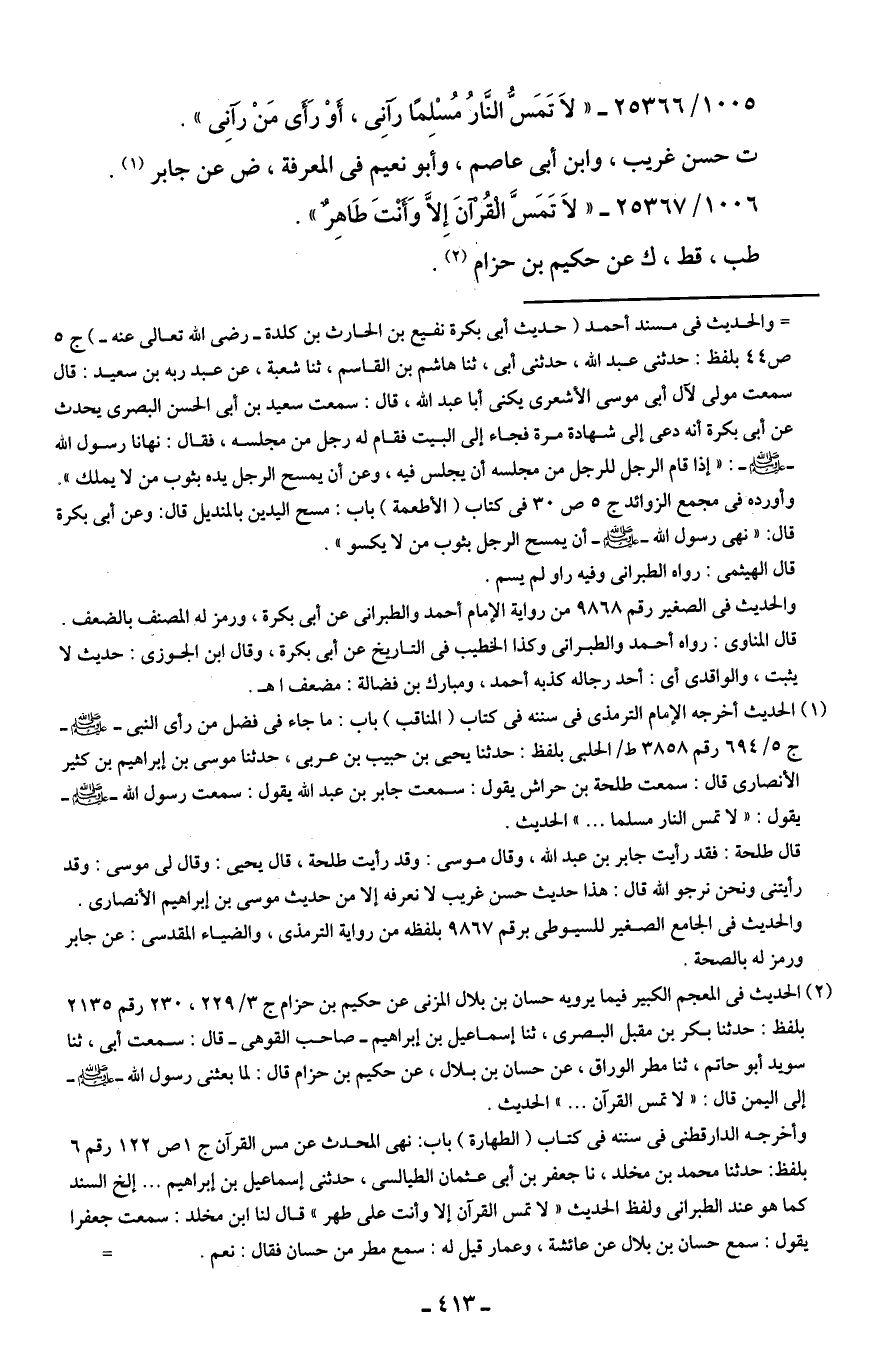 ١٠٠٥/ ٢٥٣٦٦ ـ « لاَ تَمَسُّ النَّارُ مُسْلِمًا رآنِى ، أَوْ رَأَى مَنْ رَآنِى » .
ت حسن غريب ، وابن أبى عاصم ، وأبو نعيم فى المعرفة ، ض عن جابر (١) .
١٠٠٦/ ٢٥٣٦٧ ـ « لاَ تَمَسَّ الْقُرآنَ إِلاَّ وَأَنْتَ طَاهِرٌ » .
طب ، قط ، ك عن حكيم بن حزام (٢) .
= والحديث فى مسند أحمد ( حديث أبى بكرة نفيع بن الحارث بن كلدة ـ رضى الله تعالى عنه ـ ) ج ٥
ص٤٤ بلفظ : حدثنى عبد الله ، حدثنى أبى ، ثنا هاشم بن القاسم ، ثنا شعبة ، عن عبد ربه بن سعيد : قال
سمعت مولى لآل أبى موسى الأشعرى يكنى أبا عبد الله ، قال : سمعت سعيد بن أبى الحسن البصرى يحدث
عن أبى بكرة أنه دعى إلى شهادة مرة فجاء إلى البيت فقام له رجل من مجلسه ، فقال : نهانا رسول الله
ـ ﷺ ـ : « إذا قام الرجل للرجل من مجلسه أن يجلس فيه ، وعن أن يمسح الرجل يده بثوب من لا يملك ».
وأورده فى مجمع الزوائد ج ٥ ص ٣٠ فى كتاب ( الأطعمة ) باب : مسح اليدين بالمنديل قال: وعن أبى بكرة
قال: « نهى رسول الله ـ ﷺ ـ أن يمسح الرجل بثوب من لا يكسو » .
قال الهيثمى : رواه الطبرانى وفيه راو لم يسم .
والحديث فى الصغير رقم ٩٨٦٨ من رواية الإمام أحمد والطبرانى عن أبى بكرة ، ورمز له المصنف بالضعف .
قال المناوى : رواه أحمد والطبرانى وكذا الخطيب فى التاريخ عن أبى بكرة ، وقال ابن الجوزى : حديث لا
يثبت ، والواقدى أى : أحد رجاله كذبه أحمد ، ومبارك بن فضالة : مضعف ا هـ .
(١) الحديث أخرجه الإمام الترمذى فى سننه فى كتاب ( المناقب ) باب : ما جاء فى فضل من رأى النبى ـ ﷺ ـ
ج ٥/ ٦٩٤ رقم ٣٨٥٨ ط/ الحلبى بلفظ : حدثنا يحيى بن حبيب بن عربى ، حدثنا موسى بن إبراهيم بن كثير
الأنصارى قال : سمعت طلحة بن حراش يقول : سمعت جابر بن عبد الله يقول : سمعت رسول الله ـ ﷺ ـ
يقول : « لا تمس النار مسلما ... » الحديث .
قال طلحة : فقد رأيت جابر بن عبد الله ، وقال موسى : وقد رأيت طلحة ، قال يحيى : وقال لى موسى : وقد
رأيتنى ونحن نرجو الله قال : هذا حديث حسن غريب لا نعرفه إلا من حديث موسى بن إبراهيم الأنصارى .
والحديث فى الجامع الصغير للسيوطى برقم ٩٨٦٧ بلفظه من رواية الترمذى ، والضياء المقدسى : عن جابر
ورمز له بالصحة .
(٢) الحديث فى المعجم الكبير فيما يرويه حسان بن بلال المزنى عن حكيم بن حزام ج ٣/ ٢٢٩ ، ٢٣٠ رقم ٢١٣٥
بلفظ : حدثنا بكر بن مقبل البصرى ، ثنا إسماعيل بن إبراهيم ـ صاحب القوهى ـ قال : سمعت أبى ، ثنا
سويد أبو حاتم ، ثنا مطر الوراق ، عن حسان بن بلال ، عن حكيم بن حزام قال : لما بعثنى رسول الله ـ ﷺ ـ
إلى اليمن قال : « لا تمس القرآن ... » الحديث .
وأخرجه الدارقطنى فى سننه فى كتاب ( الطهارة ) باب: نهى المحدث عن مس القرآن ج ١ص ١٢٢ رقم ٦
بلفظ: حدثنا محمد بن مخلد ، نا جعفر بن أبى عثمان الطيالسى ، حدثنى إسماعيل بن إبراهيم ... إلخ السند
كما هو عند الطبرانى ولفظ الحديث « لا تمس القرآن إلا وأنت على طهر » قال لنا ابن مخلد : سمعت جعفرا
يقول : سمع حسان بن بلال عن عائشة ، وعمار قيل له : سمع مطر من حسان فقال : نعم . =
ـ ٤١٣ ـ